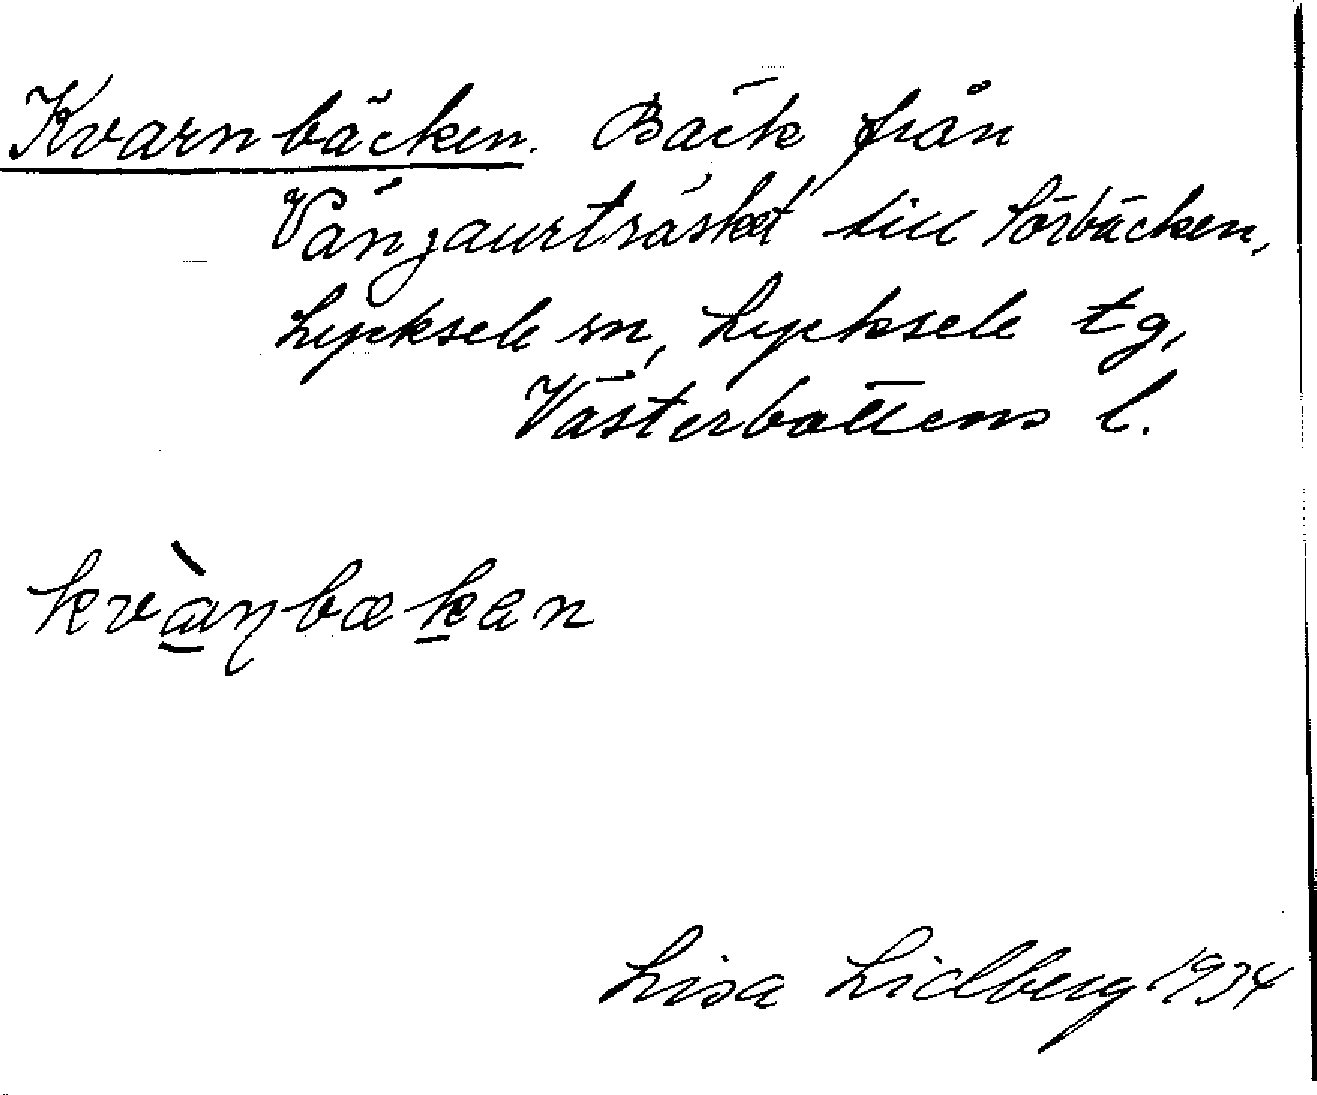 Kvarnbäcken. Bäck från
Vänjaurträsket till Sörbäcken,
Lycksele sn, Lycksele tg,
Västerbottens l.
kvàɳbækan
Lisa Lidberg 1934